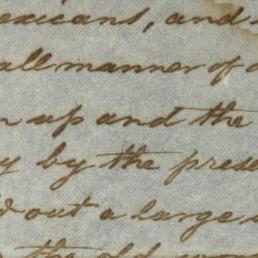 exicans, and
all manner of
up and the
y by the prese
out a large
the old